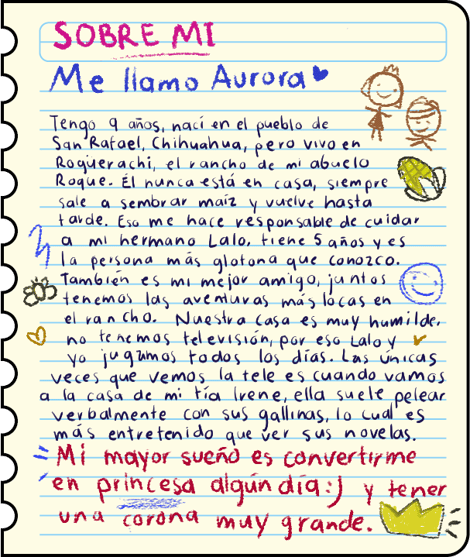 SOBRE MI
Me llamo Aurora
Tengo 9 años, nací en el pueblo de
San Rafael, Chihuahua, pero vivo en
Roguerachi, el rancho de mi abuelo
Roque. Él nunca está en casa, siempre
sale a sembrar maíz y vuelve hasta
tarde. Eso me hace responsable de cuidar
a mi hermano Lalo, tiene 5 años y es
la persona más glotona que conozco.
También es mi mejor amigo, juntos
tenemos las aventuras más locas en
el rancho. Nuestra casa es muy humilde,
no tenemos televisión, por eso Lalo y
yo jugamos todos los días. Las únicas
veces que vemos la tele es cuando vamos
a la casa de mi tía Irene, ella suele pelear
verbalmente con sus gallinas, lo cual es
más entretenido que ver sus novelas.
Mi mayor sueño es convertirme
en princesa algún día:) y tener
una corona muy grande.